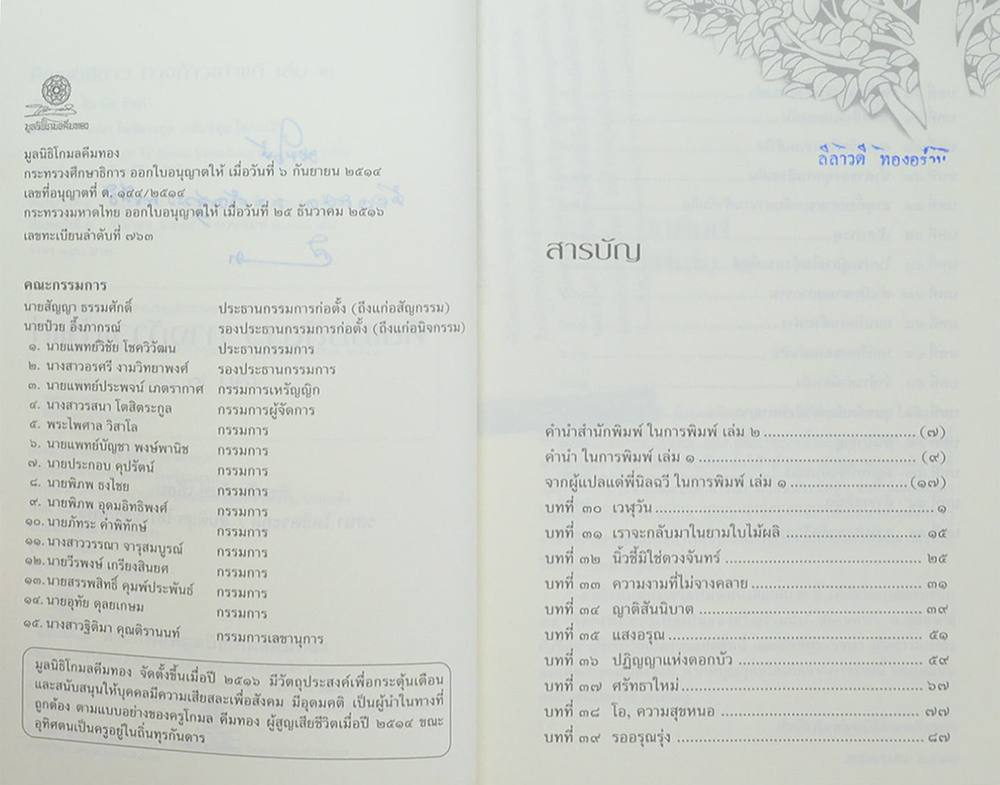 มูลนิธิโกมลคีมทอง
มูลนิธิโกมลคีมทอง
กระทรวงศึกษาธิการ ออกใบอนุญาตให้ เมื่อวันที่ ๖ กันยายน ๒๕๑๔
เลขที่อนุญาตที่ ต. ๑๔๔/๒๕๑๔
กระทรวงมหาดไทย ออกใบอนุญาตให้ เมื่อวันที่ ๒๕ ธันวาคม ๒๕๑๖
เลขทะเบียนลำดับที่ ๗๖๓
คณะกรรมการ
นายสัญญา ธรรมศักดิ์ ประธานกรรมการก่อตั้ง (ถึงแก่อสัญกรรม)
นายป๋วย อึ๊งภากรณ์ รองประธานกรรมการก่อตั้ง (ถึงแก่อนิจกรรม)
๑. นายแพทย์วิชัย โชควิวัฒน ประธานกรรมการ
๒. นางสาวอรศรี งามวิทยาพงศ์ รองประธานกรรมการ
๓. นายแพทย์ประพจน์ เภตรากาศ กรรมการเหรัญญิก
๔. นางสาวรสนา โตสิตระกูล กรรมการผู้จัดการ
๕. พระไพศาล วิสาโล กรรมการ
๖. นายแพทย์บัญชา พงษ์พานิช กรรมการ
๗. นายประกอบ คุปรัตน์ กรรมการ
๘. นายพิภพ ธงไชย กรรมการ
๙. นายพิภพ อุดมอิทธิพงศ์ กรรมการ
๑๐. นายภัทระ คำพิทักษ์ กรรมการ
๑๑. นางสาววรรณา จารุสมบูรณ์ กรรมการ
๑๒. นายวีรพงษ์ เกรียงสินยศ กรรมการ
๑๓. นายสรรพสิทธิ์ คุมพ์ประพันธ์ กรรมการ
๑๔. นายอุทัย ดุลยเกษม กรรมการ
๑๕. นางสาวฐิติมา คุณติรานนท์ กรรมการเลขานุการ
มูลนิธิโกมลคีมทอง จัดตั้งขึ้นเมื่อปี ๒๕๑๖ มีวัตถุประสงค์เพื่อกระตุ้นเตือน
และสนับสนุนให้บุคคลมีความเสียสละเพื่อสังคม มีอุดมคติ เป็นผู้นำในทางที่
ถูกต้อง ตามแบบอย่างของครูโกมล คีมทอง ผู้สูญเสียชีวิตเมื่อปี ๒๕๑๔ ขณะ
อุทิศตนเป็นครูอยู่ในถิ่นทุรกันดาร
ลีลาวดี
สารบัญ
คำนำสำนักพิมพ์ ในการพิมพ์ เล่ม ๒ (๗)
คำนำ ในการพิมพ์ เล่ม ๑ (๙)
จากผู้แปลแด่พี่นิลฉวี ในการพิมพ์ เล่ม ๑ (๑๗)
บทที่ ๓๐ เวฬุวัน ๑
บทที่ ๓๑ เราจะกลับมาในยามใบไม้ผลิ ๑๕
บทที่ ๓๒ นิ้วชี้มิใช่ดวงจันทร์ ๒๕
บทที่ ๓๓ ความงามที่ไม่จางคลาย ๓๑
บทที่ ๓๔ ญาติสันนิบาต ๓๙
บทที่ ๓๕ แสงอรุณ ๕๑
บทที่ ๓๖ ปฏิญญาแห่งดอกบัว ๕๙
บทที่ ๓๗ ศรัทธาใหม่ ๖๗
บทที่ ๓๘ โอ, ความสุขหนอ ๗๗
บทที่ ๓๙ รออรุณรุ่ง ๘๗